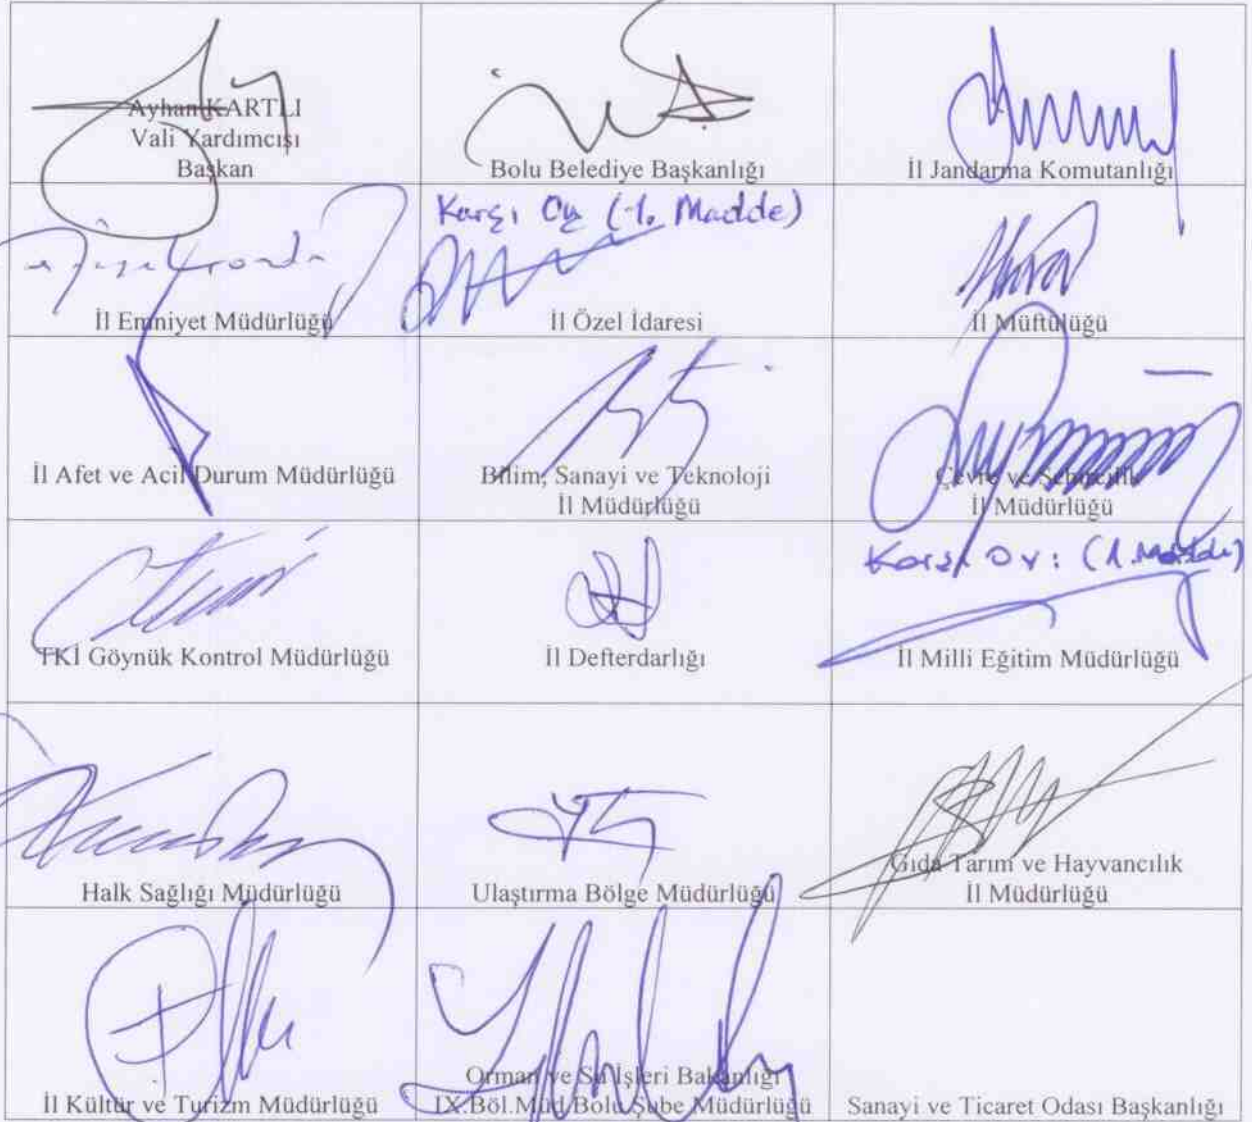 Ayhan KARTLI
Vali Yardımcısı
Başkan
Bolu Belediye Başkanlığı
İl Jandarma Komutanlığı
İl Emniyet Müdürlüğü
Karşı Oy (1. Madde)
İl Özel İdaresi
İl Müftülüğü
İl Afet ve Acil Durum Müdürlüğü
Bilim, Sanayi ve Teknoloji
İl Müdürlüğü
Çevre ve Şehircilik
İl Müdürlüğü
TKİ Göynük Kontrol Müdürlüğü
İl Defterdarlığı
Karşı Oy: (1. Madde)
İl Milli Eğitim Müdürlüğü
Halk Sağlığı Müdürlüğü
Ulaştırma Bölge Müdürlüğü
Gıda Tarım ve Hayvancılık
İl Müdürlüğü
İl Kültür ve Turizm Müdürlüğü
Orman ve Su İşleri Bakanlığı
IX.Böl.Müd Bolu Şube Müdürlüğü
Sanayi ve Ticaret Odası Başkanlığı